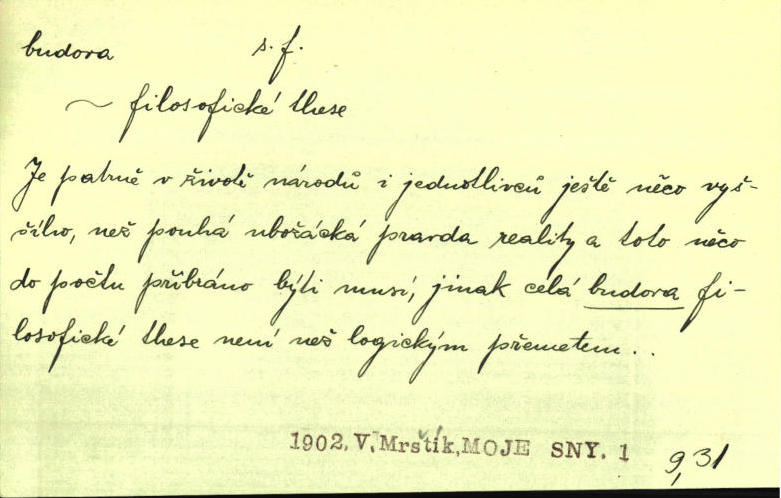 budora s. f.
~ filosofické these
Je patrně v životě národů i jednotlivců ještě něco vyš-
šího, než pouhá ubožácká pravda reality a toto něco
do počtu přibráno býti musí, jinak celá budora fi-
losofické these není než logickým přemetem..
1902, V. Mrštík, MOJE SNY. 1
9,31